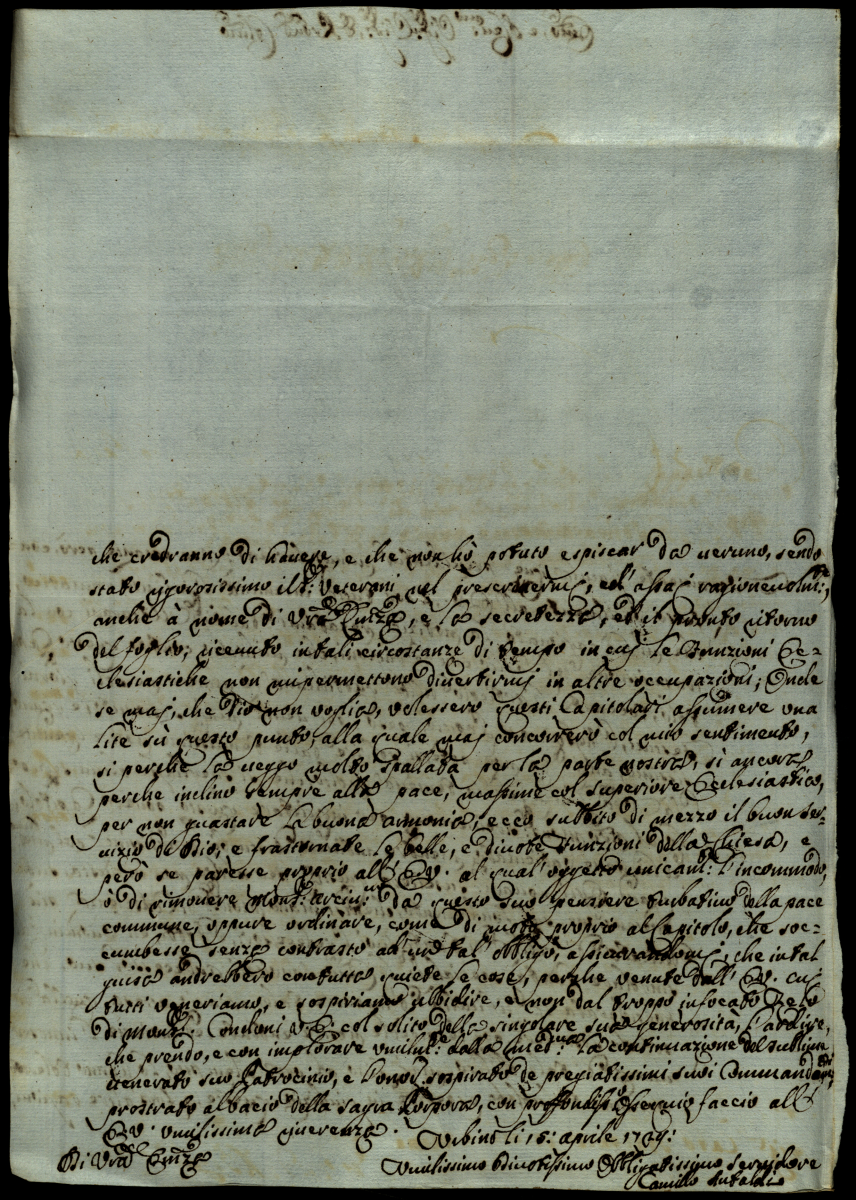 che credranno di havere, e che non hò potuto espiscar da veruno, sendo
stato rigorosissimo il S: Veterani nel prescrivermj, ed' assaj ragionevolm:te,
anche à nome di Vra Emza, e la secretezza, ed il pronto ritorno
del foglio, ricevuto in tali circostanze di tempo in cuj le Funzioni Ec-
clesiastiche non mi permettono divertirmj in altre occupazioni; Onde
se maj, che Dio non voglia, volessero questi Capitolari assumere una
lite sù questo punto, alla quale maj concorrerò col mio sentimento,
si perche la veggo molto spallata per la parte nostra, si ancora
perche inclino sempre alla pace, massime col superiore Ecclesiastico,
per non guastare la buona armonia, ecco subbito di mezzo il buon ser-
vizio di Dio, e frastornate le belle, e divote Funzioni della Chiesa, e
però se paresse proprio all' E.V. al qual' oggetto unicam: l'incommodo,
ò di rimovere Mons: Arciv: da questo suo pensiere turbativo della pace
commune, oppure ordinare, come di moto proprio al Capitolo, che soc-
cumbesse senza contrasto ad un tal' obbligo, assicurandomj, che in tal
guisa andrebbero con tutta quiete le cose, perche venute dall' E.V. cuj
tutti veneriamo, e sospiriamo ubbidire, e non dal troppo infocato Zelo
di Mons: Condoni V.E. col solito della singolare sua generosità, l'ardire,
che prendo, e con implorare umilm:te dalla med:ma la continuazione del sublime
venerato suo Patrocinio, e l'onor sospirato de pregiatissimi suoi Commandam:ti
prostrato al bacio della sagra Porpora, con proffondiss:o ossequio faccio all'
E.V. umilissima riverenza. Urbino li 15: aprile 17
Di Vra Emza
Umilissimo Divotissimo Obbligatissimo Servidore
Camillo Antaldi